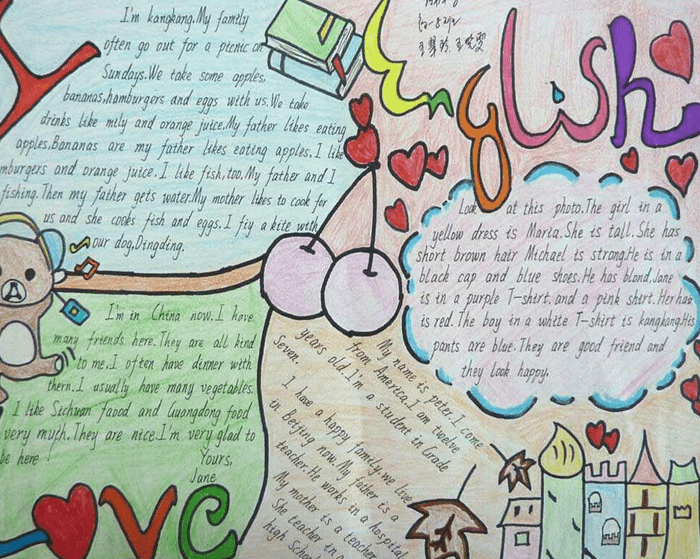 I'm kangkang.My family
often go out for a picnic on
Sundays.We take some apples,
bananas,hamburgers and eggs with us.We take
drinks like mily and orange juice.My father likes eating
apples.Bananas are my father likes eating apples.I like
mburgers and orange juice.I like fish,too.My father and I
fishing.Then my father gets water.My mother likes to cook for
us and she cooks fish and eggs.I fiy a kite with
our dog,Dingding.
English
Look at this photo.The girl in a
yellow dress is Maria.She is tall.She has
short brown hair Michael is strong.He is in a
black cap and blue shoes.He has blond.Jane
is in a purple T-shirt.and a pink shirt.Her hair
is red.The boy in a white T-shirt is kangkang.His
pants are blue.They are good friend and
they look happy.
I'm in China now.I have
many friends here.They are all kind
to me.I often have dinner with
them.I usually have many vegetables.
I like Sichuan faood and Guangdong food
very myth.They are nice.I'm very glad to
be here
Yours,
Jane
My name is peter.I come
from America.I am twelve
years old.I'm a student in Grade
Seven.
I have a happy family.we live
in Beijing now.My father is a
teacher.He works in a hospital
My mother is a teacher
She teacher in a
high School
Y
OVE